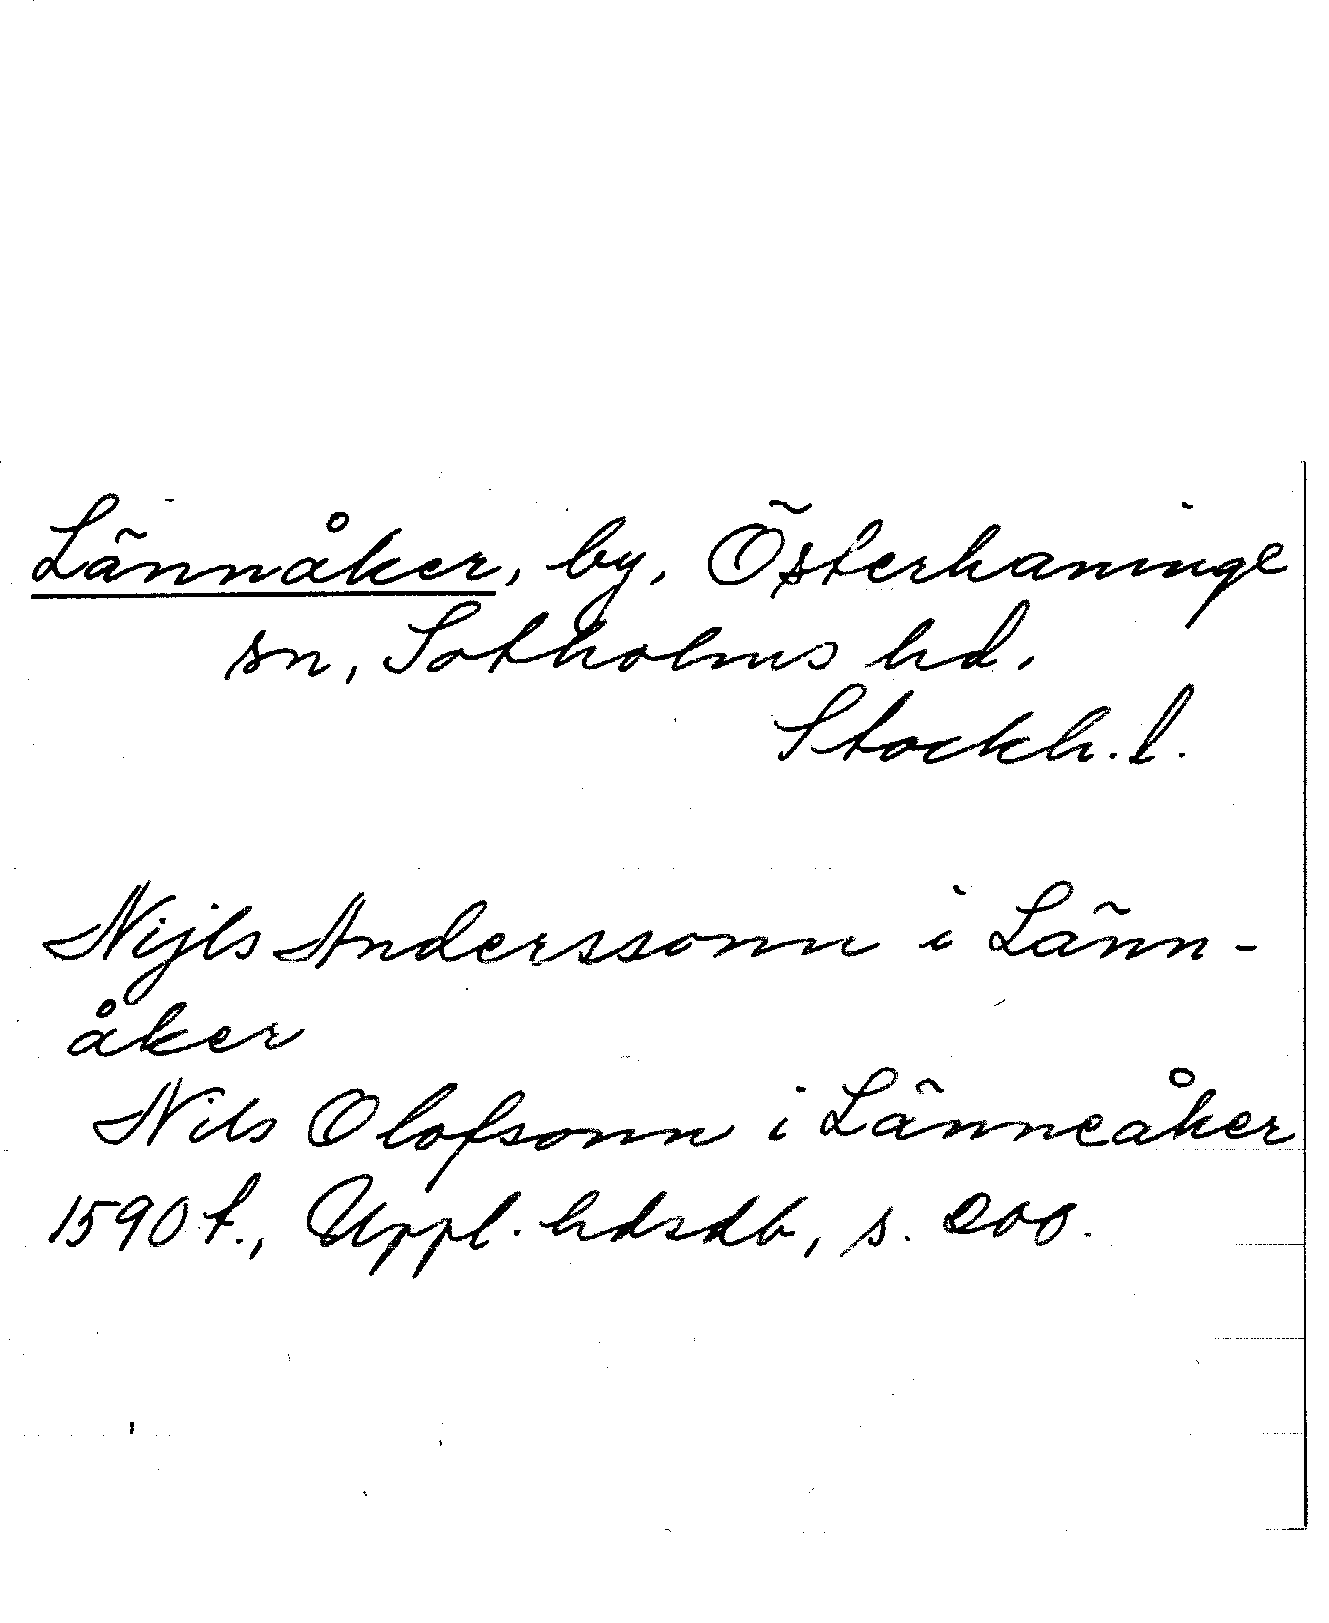 Lännåker, by, Österhaninge
sn, Sotholms hd.
Stockh. l.
Nijls Anderssonn i Länn-
åker
Nils Olofsonn i Länneåker
1590 t., Uppl. hdsdb, s. 200.